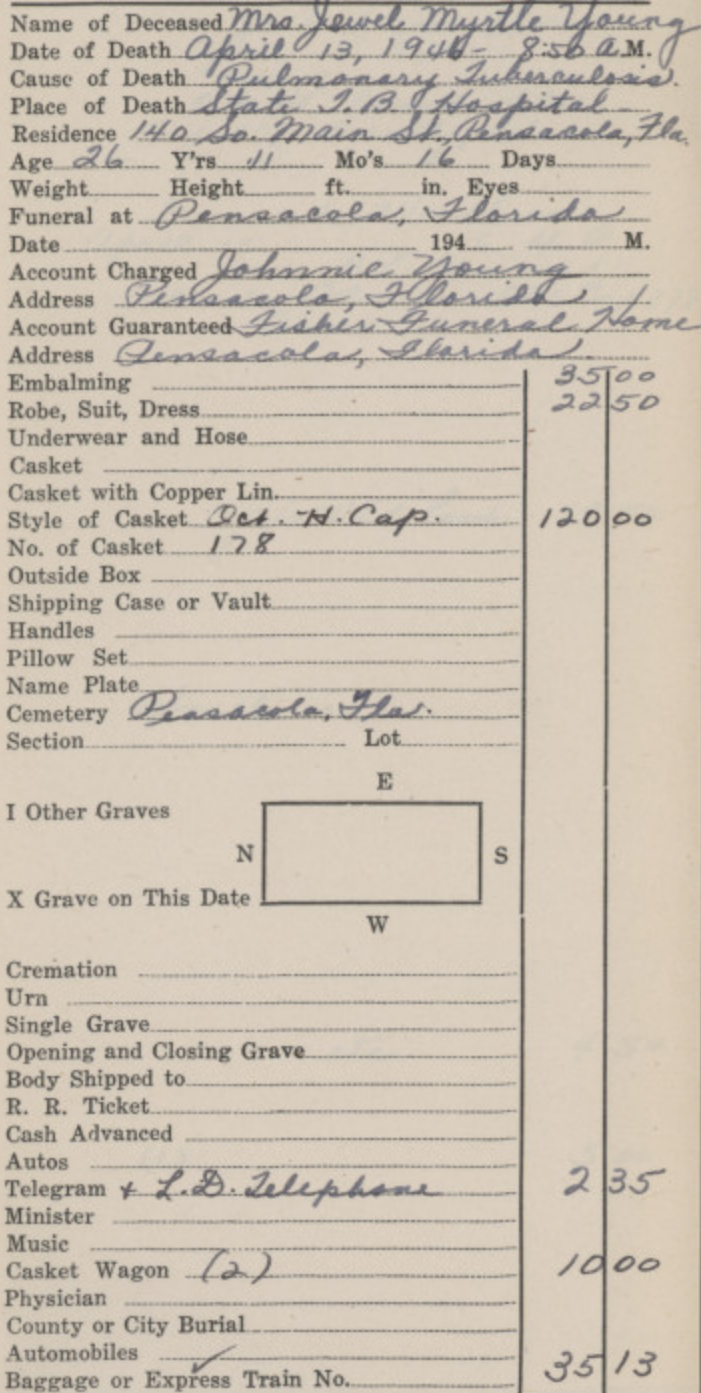 Name of Deceased Mrs. Jewel Myrtle Young
Date of Death April 13, 1946 - 8:50 A.M.
Cause of Death Pulmonary Tuberculosis.
Place of Death State T.B. Hospital
Residence 140 So. Main St., Pensacola, Fla.
Age 26 Y'rs 11 Mo's 16 Days
Weight Height ft. in. Eyes
Funeral at Pensacola, Florida
Date 194 M.
Account Charged Johnnie Young
Address Pensacola, Florida
Account Guaranteed Fisher Funeral Home
Address Pensacola, Florida.
Embalming 35 00
Robe, Suit, Dress 22 50
Underwear and Hose
Casket
Casket with Copper Lin.
Style of Casket Oct. H. Cap. 120 00
No. of Casket 178
Outside Box
Shipping Case or Vault
Handles
Pillow Set
Name Plate
Cemetery Pensacola, Fla.
Section Lot
E
I Other Graves
N S
X Grave on This Date
W
Cremation
Urn
Single Grave
Opening and Closing Grave
Body Shipped to
R. R. Ticket
Cash Advanced
Autos
Telegram + L.D. Telephone 2 35
Minister
Music
Casket Wagon (2) 10 00
Physician
County or City Burial
Automobiles
Baggage or Express Train No. 35 13